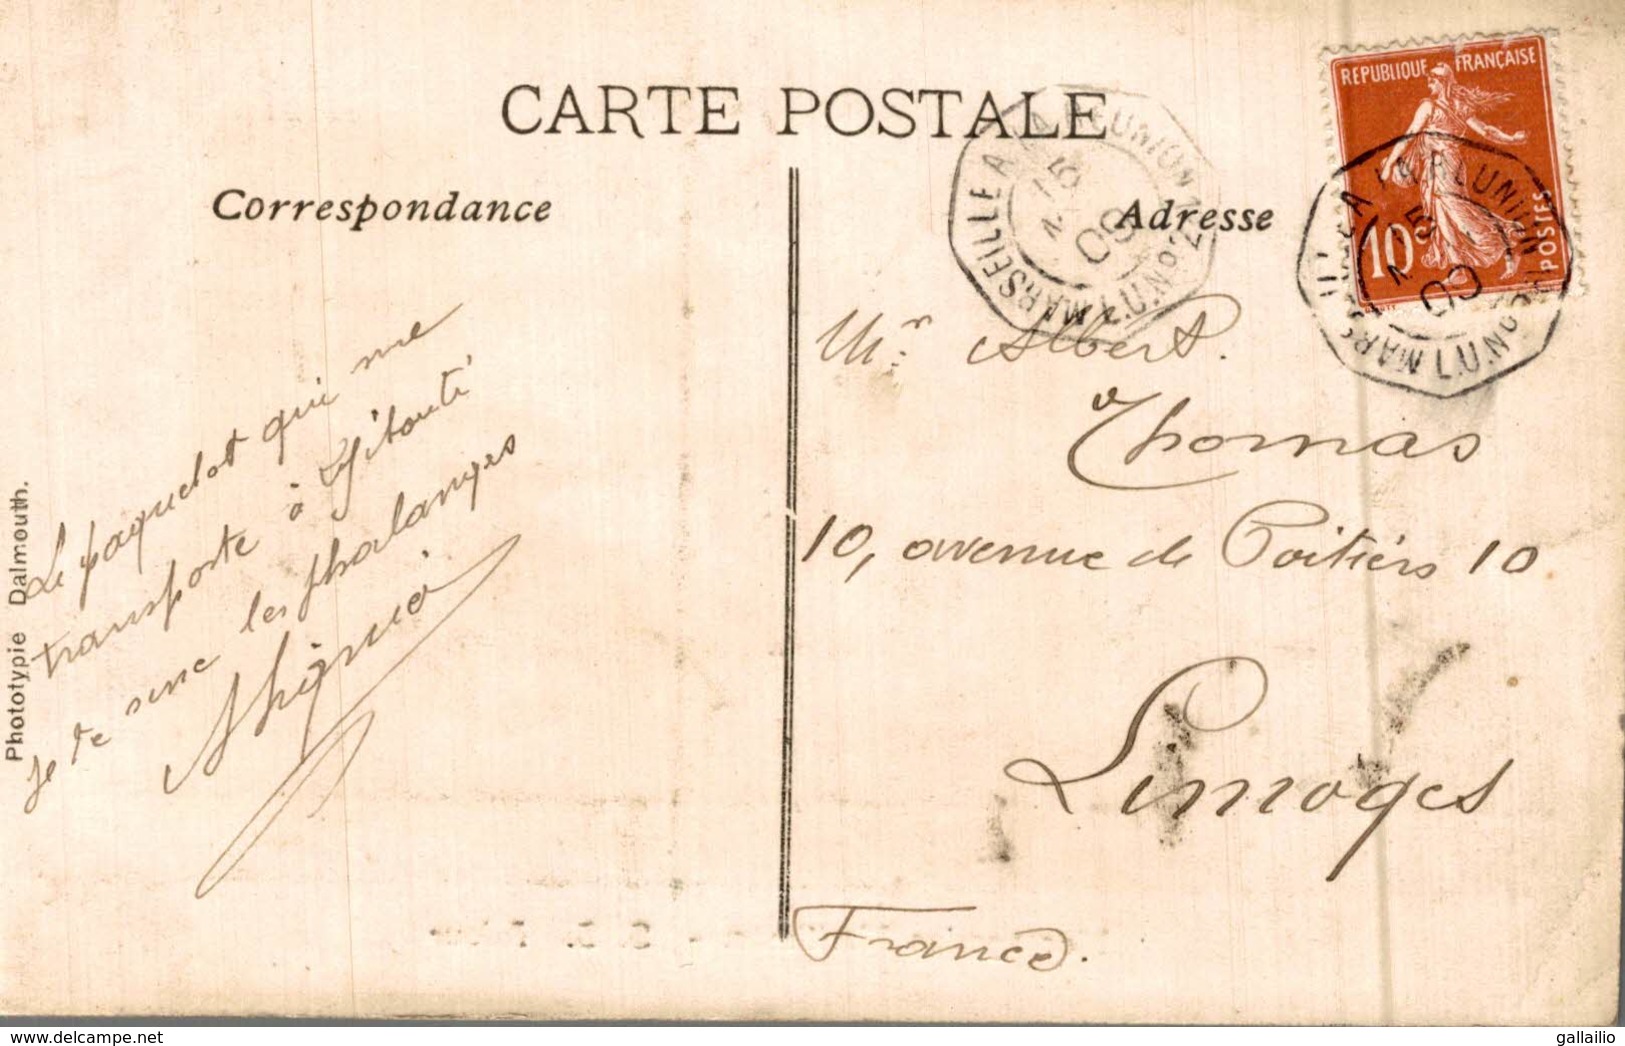 CARTE POSTALE
Correspondance
Adresse
REPUBLIQUE FRANÇAISE
10c
POSTES
MARSEILLE A LA REUNION
L.U. Nº
15
09
Le paquebot qui me
transporte à Djibouti
je te serre les phalanges
Mr. Albert.
Thomas
10, avenue de Poitiers 10
Limoges
France.
Phototypie Dalmouth.
delcampe.net
gallailio